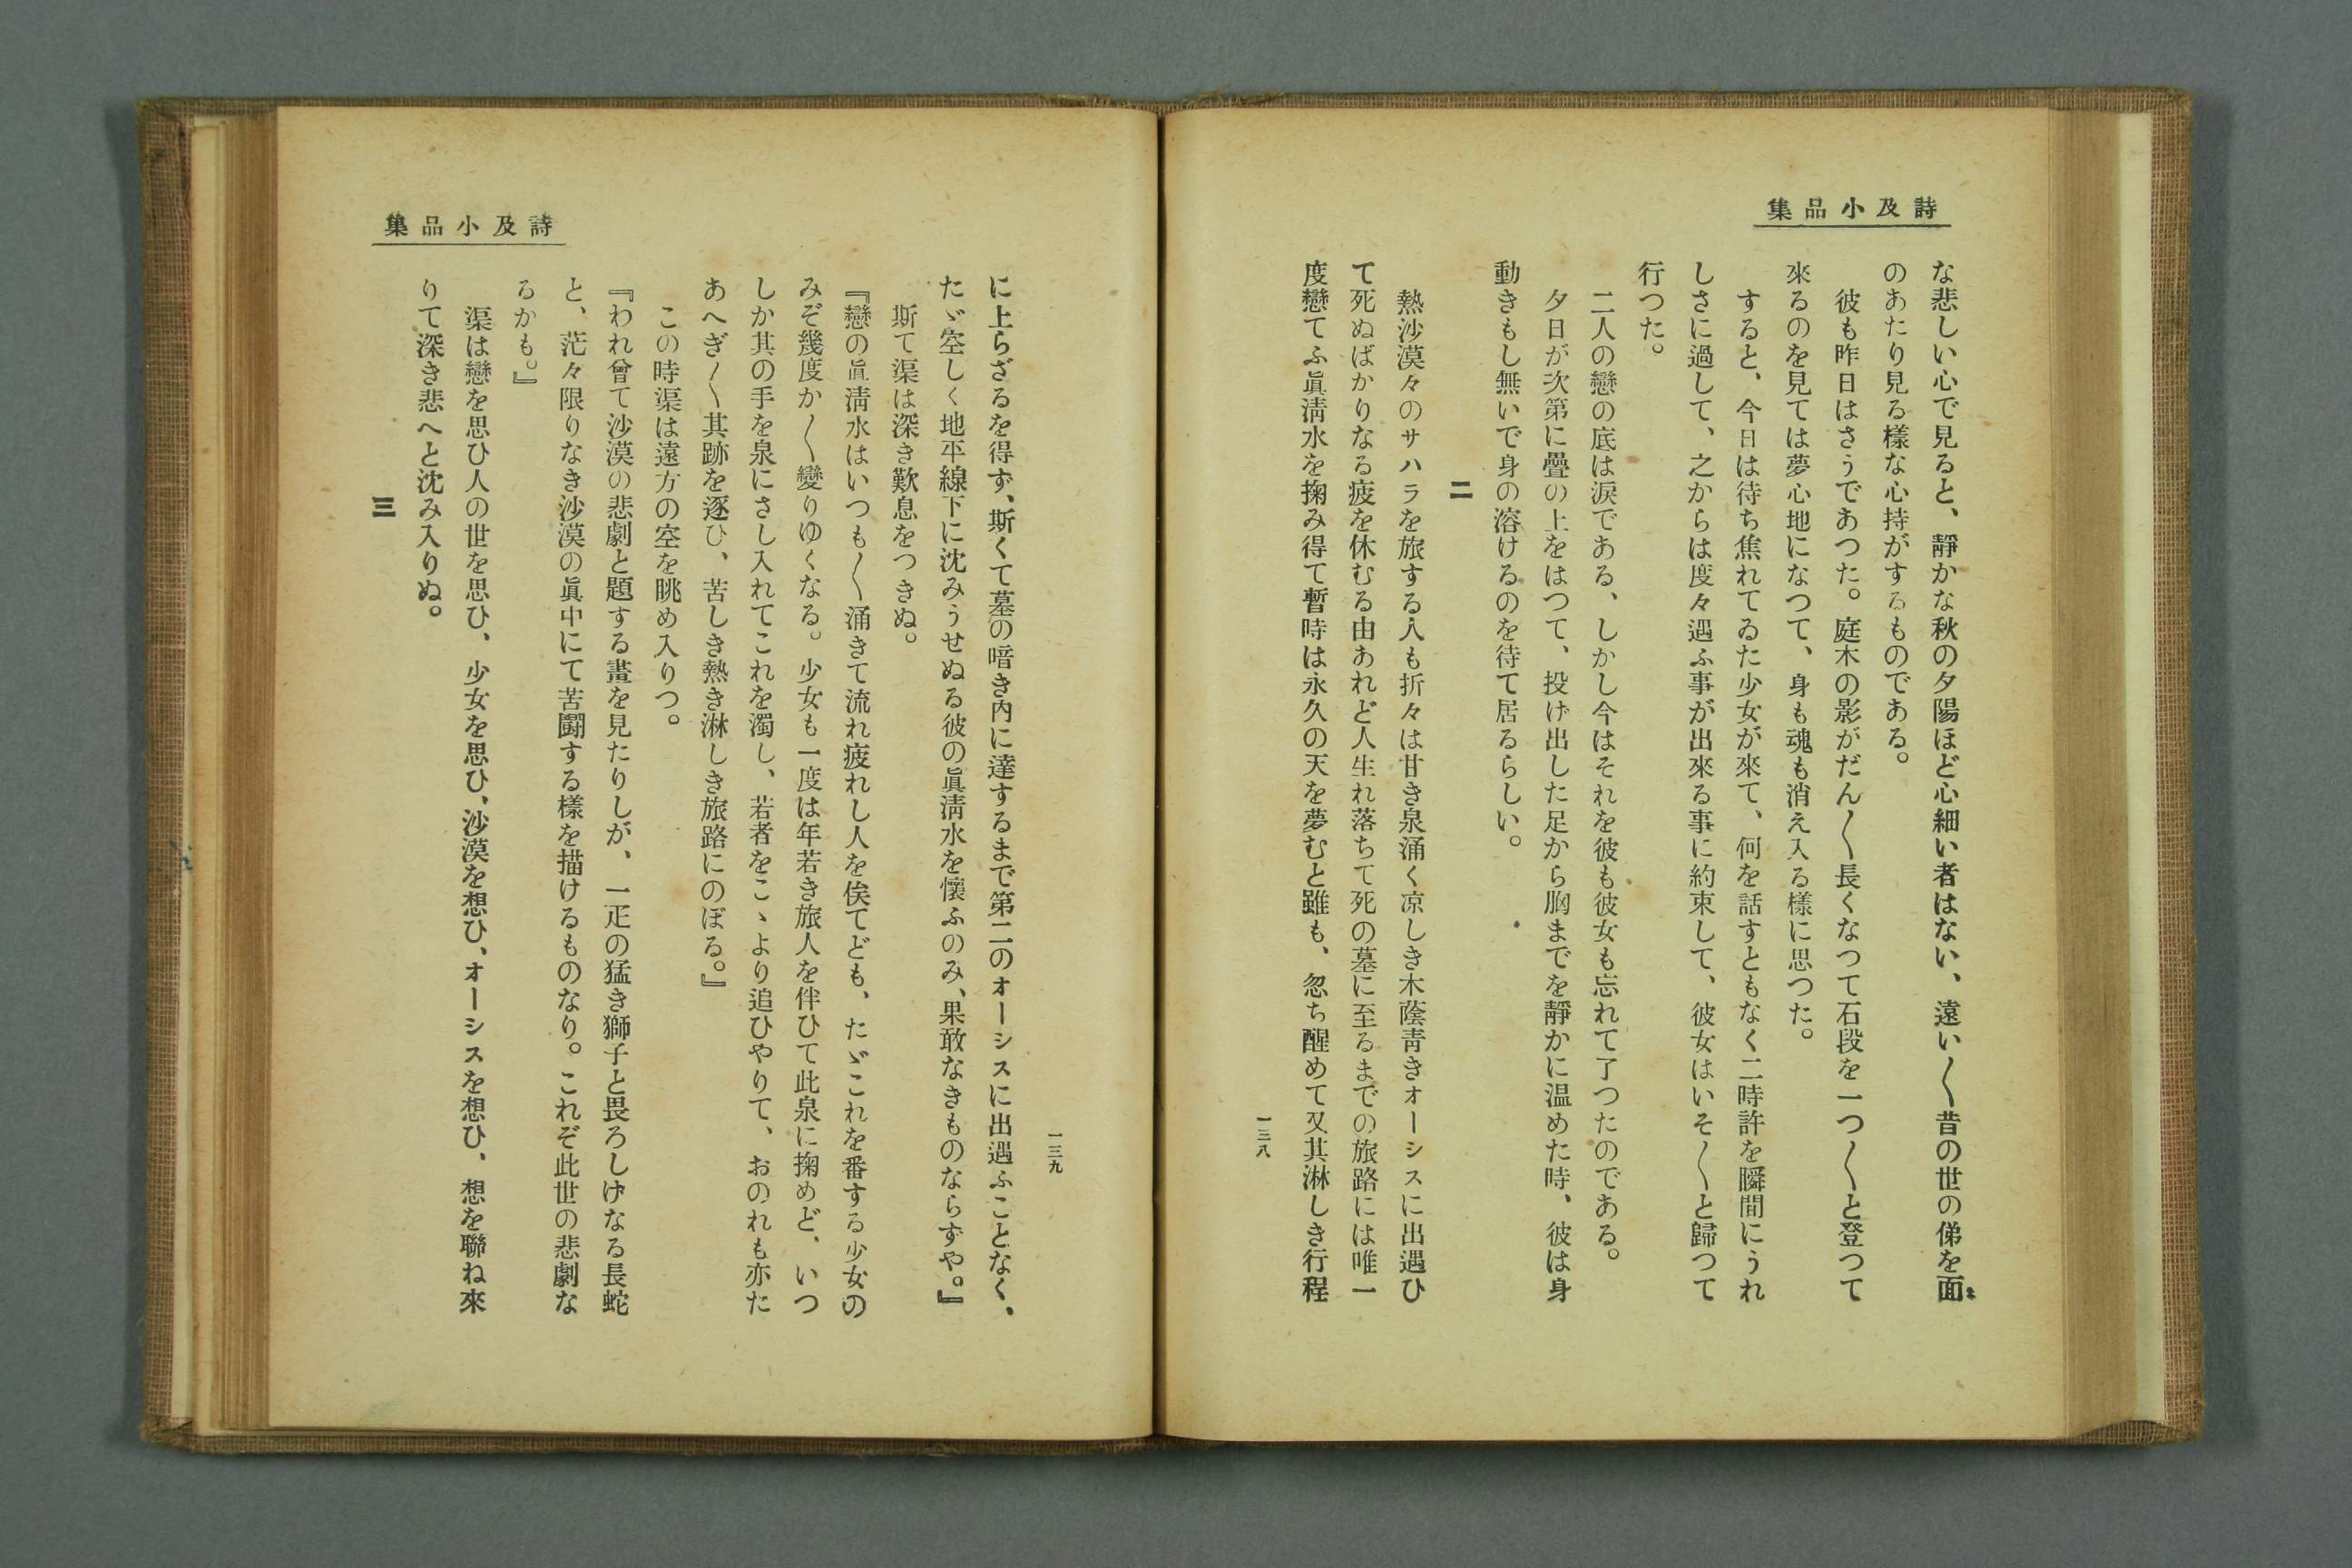 詩及小品集
な悲しい心で見ると、靜かな秋の夕陽ほど心細い者はない、遠い〳〵昔の世の俤を面
ま
のあたり見る樣な心持がするものである。
彼も昨日はさうであつた。庭木の影がだん〳〵長くなつて石段を一つ〳〵と登つて
來るのを見ては夢心地になつて、身も魂も消え入る樣に思つた。
すると、今日は待ち焦れてゐた少女が來て、何を話すともなく二時許を瞬間にうれ
しさに過して、之からは度々遇ふ事が出來る事に約束して、彼女はいそ〳〵と歸つて
行つた。
二人の戀の底は涙である、しかし今はそれを彼も彼女も忘れて了つたのである。
夕日が次第に疊の上をはつて、投げ出した足から胸までを靜かに温めた時、彼は身
動きもし無いで身の溶けるのを待て居るらしい。
二
熱沙漠々のサハラを旅する人も折々は甘き泉涌く凉しき木蔭靑きオーシスに出遇ひ
て死ぬばかりなる疲を休むる由あれど人生れ落ちて死の墓に至るまでの旅路には唯一
度戀てふ眞淸水を掬み得て暫時は永久の天を夢むと雖も、忽ち醒めて又其淋しき行程
一三八
詩及小品集
に上らざるを得ず、斯くて墓の暗き内に達するまで第二のオーシスに出遇ふことなく、
たゞ空しく地平線下に沈みうせぬる彼の眞淸水を懷ふのみ、果敢なきものならずや。』
斯て渠は深き歎息をつきぬ。
『戀の眞淸水はいつも〳〵涌きて流れ疲れし人を俟てども、たゞこれを番する少女の
みぞ幾度か〳〵變りゆくなる。少女も一度は年若き旅人を伴ひて此泉に掬めど、いつ
しか其の手を泉にさし入れてこれを濁し、若者をこゝより追ひやりて、おのれも亦た
あへぎ〳〵其跡を逐ひ、苦しき熱き淋しき旅路にのぼる。』
この時渠は遠方の空を眺め入りつ。
『われ曾て沙漠の悲劇と題する畫を見たりしが、一疋の猛き獅子と畏ろしげなる長蛇
と、茫々限りなき沙漠の眞中にて苦鬪する樣を描けるものなり。これぞ此世の悲劇な
るかも。』
渠は戀を思ひ人の世を思ひ、少女を思ひ、沙漠を想ひ、オーシスを想ひ、想を聯ね來
りて深き悲へと沈み入りぬ。
三
一三九